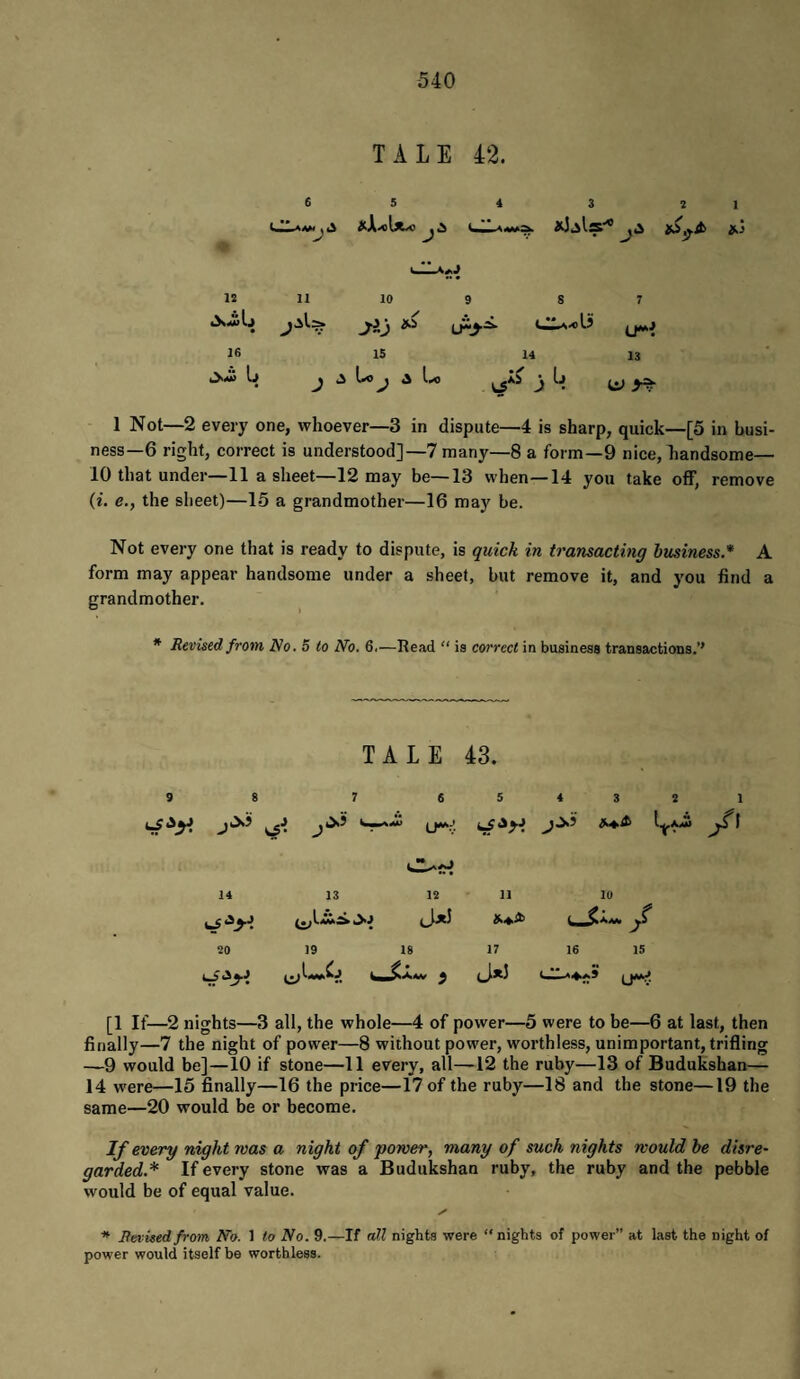 540
TALE 42.
6 5 4 3 2 1
نه هرکه در مجادله چست در معامله درست
نیست
12 11 10 9 8 7
بس قامت خوش که زیر چادر باشد
16 15 14 13
چون باز کنی مادر مادر باشد
1 Not—2 every one, whoever—3 in dispute—4 is sharp, quick—[5 in busi-
ness—6 right, correct is understood]—7 many—8 a form—9 nice, handsome—
10 that under—11 a sheet—12 may be—13 when—14 you take off, remove
(i. e., the sheet)—15 a grandmother—16 may be.
Not every one that is ready to dispute, is quick in transacting business.* A
form may appear handsome under a sheet, but remove it, and you find a
grandmother.
* Revised from No. 5 to No. 6.—Read “ is correct in business transactions.”
TALE 43.
9 8 7 6 5 4 3 2 1
اگر شبها همه قدر بودی پس شب قدر بی قدر بودی
بیت
14 13 12 11 10
گر سنگ همه لعل بدخشان بودی
20 19 18 17 16 15
پس قیمت لعل و سنگ یکسان بودی
[1 If—2 nights—3 all, the whole—4 of power—5 were to be—6 at last, then
finally—7 the night of power—8 without power, worthless, unimportant, trifling
—9 would be]—10 if stone—11 every, all—12 the ruby—13 of Budukshan—
14 were—15 finally—16 the price—17 of the ruby—18 and the stone—19 the
same—20 would be or become.
If every night was a night of power, many of such nights would be disre-
garded.* If every stone was a Budukshan ruby, the ruby and the pebble
would be of equal value.
* Revised from No. 1 to No. 9.—If all nights were “ nights of power” at last the night of
power would itself be worthless.